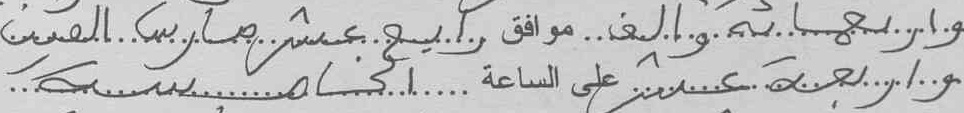 وأربعمائة وألف موافق رابع عشر مارس ألفين
وأربعة عشر على الساعة الخامسة